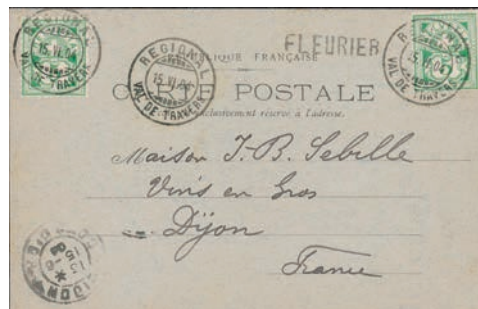 REGIONAL
15.VI.04
VAL DE TRAVERS
REGIONAL
15.VI.04
VAL DE TRAVERS
FLEURIER
REGIONAL
15.VI.04
VAL DE TRAVERS
RÉPUBLIQUE FRANÇAISE
CARTE POSTALE
exclusivement réservé à l'adresse.
Maison J. B. Sebille
Vins en Gros
Dijon
France
DIJON